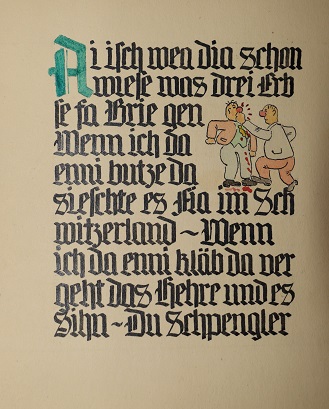 Ai isch wea dia schon
wiese was drei Erb
se fa Brie gen
Wenn ich da
enni butze da
sieschte es Fia im Sch
witzerland ~ Wenn
ich da enni kläb da ver
geht das Hehre und es
Sihn ~ Du Schpengler